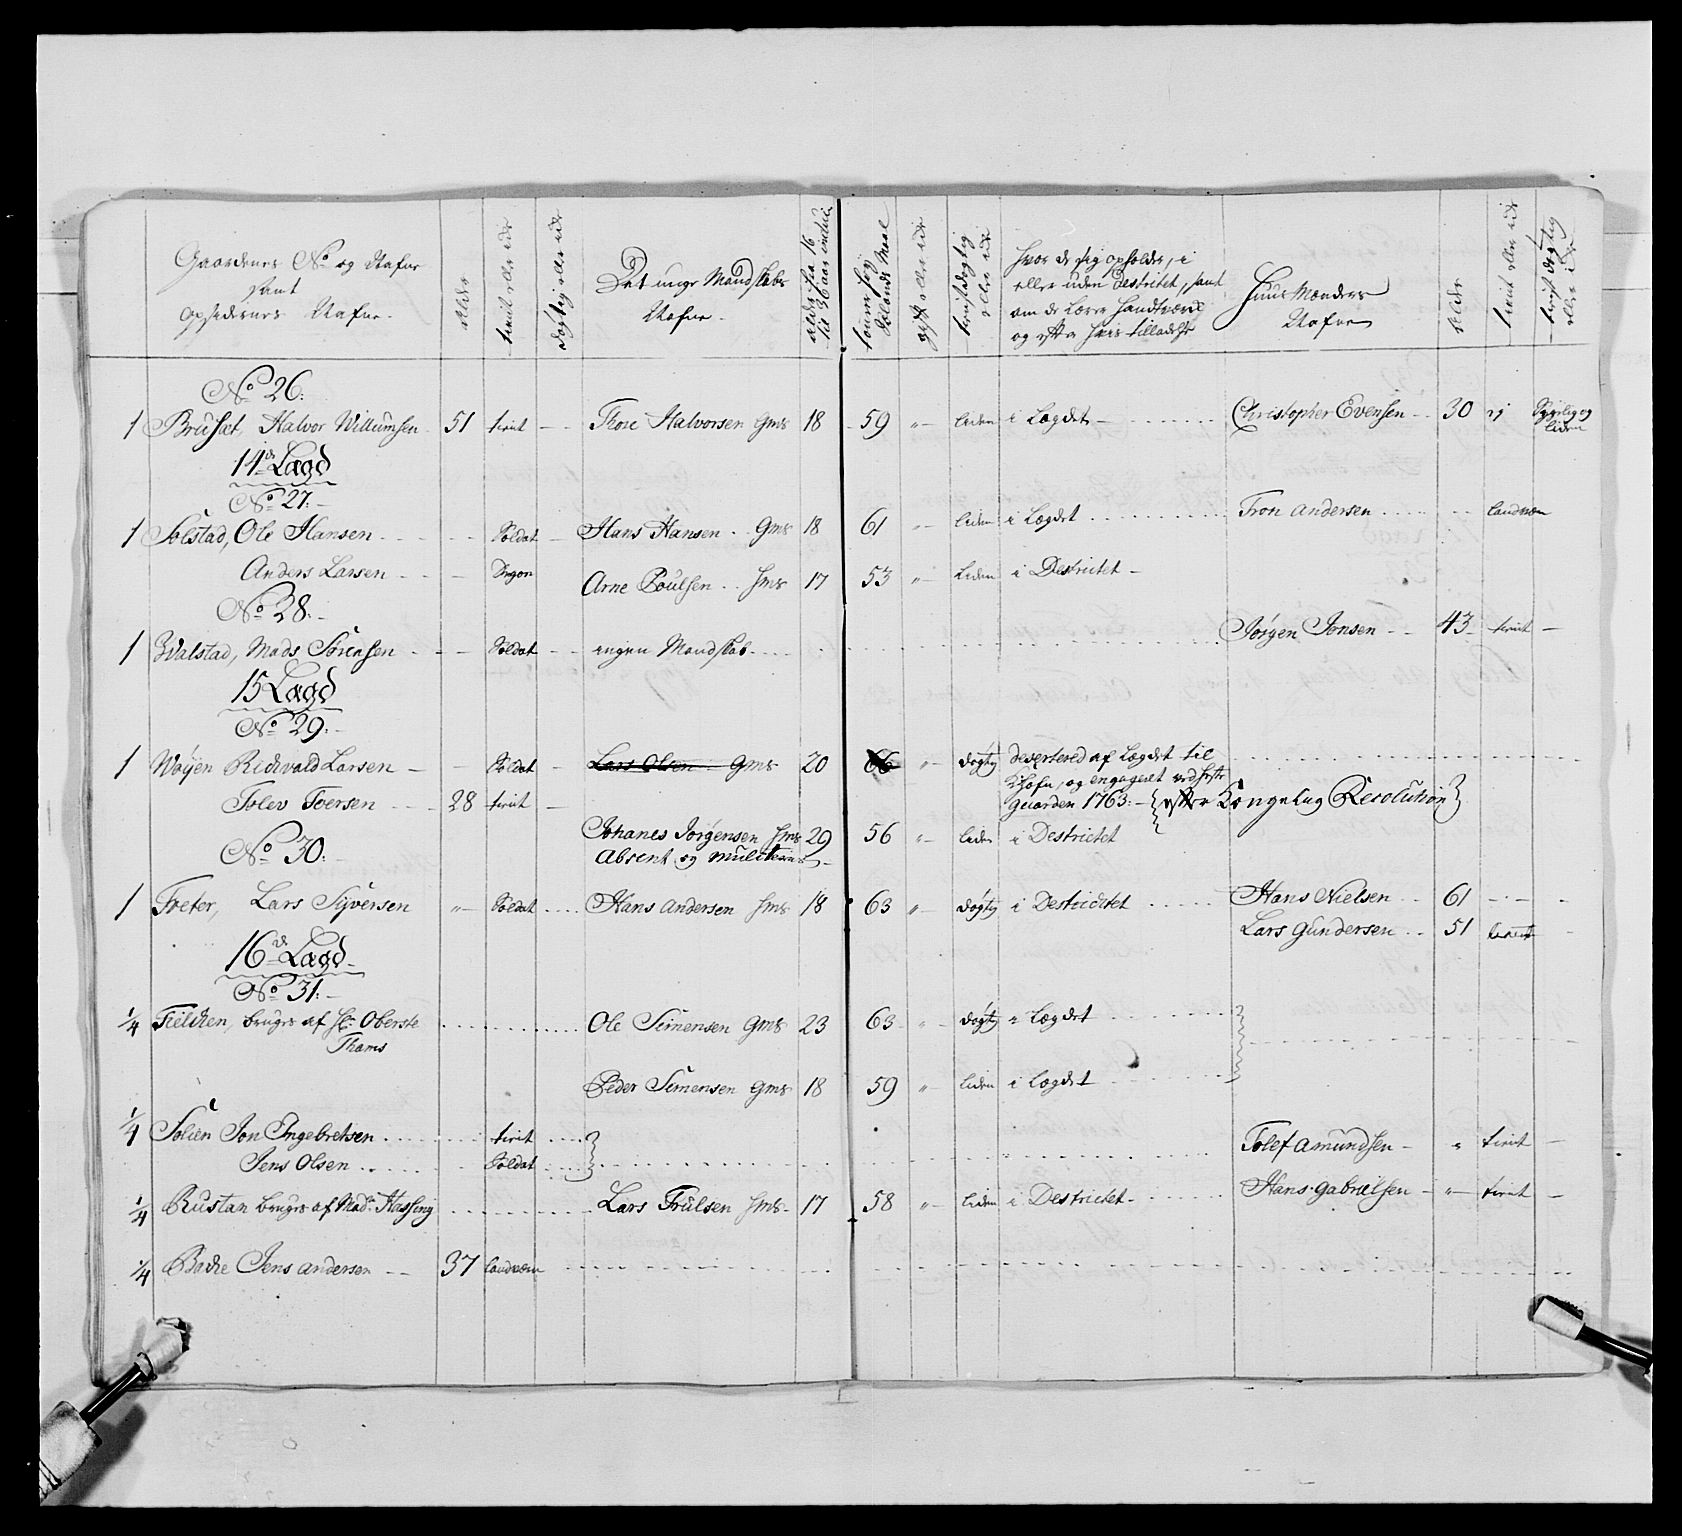 Gaardenes No og Nafne
samt
opsidernes Nafne.
Alder
tient eller ei
dögtig eller ei
Det unge Mandskabs
Nafne.
alder fra 16
til 36 aar inclus:
tommer höy
Siælands Maal
gift eller ei
tienstdögtig
eller ei
hvor de sig opholder, i
eller uden Destrictet, samt
om de Lærer Handtværk
og efter hvis tilladelse
Huus Mænders
Nafne
Alder
tient eller ei
tienst dögtig
eller ei
No 26:
1 Bruset, Halvor Willumsen 51 tient — Thore Halvorsen Gms 18 59 „ liden i Lægdet Christopher Evensen 30 ej Sygelig og
liden
14de Lægd
No 27:
1 Solstad, Ole Hansen Soldat — Hans Hansen Gms 18 61 „ liden i Lægdet Tron Andersen Landværn
Anders Larsen Dragon Arne Poulsen hms 17 53 „ Liden i Destrictet
No 28:
1 Walstad, Mads Sörensen Soldat ingen Mandskab Jörgen Jonsen 43 tient —
15 Lægd
No 29:
1 Wöyen Redwald Larsen Soldat Lars Olsen Gms 20 66 „ dögtig desertered af Lægdet til
Khafn, og engageret ved heste
Tolev Toersen 28 tient — Guarden 1763: efter Kongelig Resolution
Johanes Jörgensen hms 29 56 „ liden i Destrictet
No 30: Absent og
1 Freter, Lars Syversen „ Soldat Hans Andersen hms 18 63 „ dögtig i Destrictet Hans Nielsen 61
Lars Gundersen 51
16de Lægd
No 31:
1/4 Fielden, bruges af Hr: Oberste Ole Simensen Gms 23 63 „ dögtig i Lægdet
Thams
Peder Simensen Gms 18 59 „ liden i Lægdet
1/4 Solien Jon Ingebretsen tient Tolef Amundsen „ tient —
Jens Olsen Soldat
1/4 Rustan bruges af Mad: Hassing Lars Trulsen hms 17 58 „ liden i Destrictet Hans Gabrielsen „ tient —
1/4 Backe Jens Andersen 37 Landværn